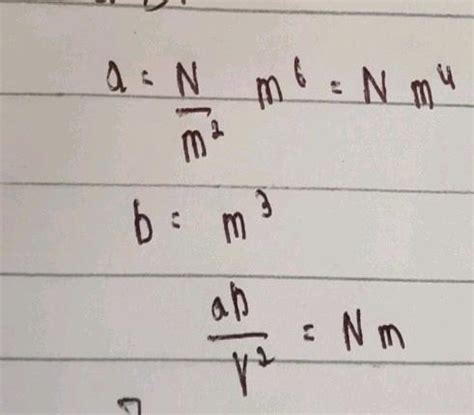 a = N/m² m⁶ = N m⁴
b = m³
ab/V² = N m